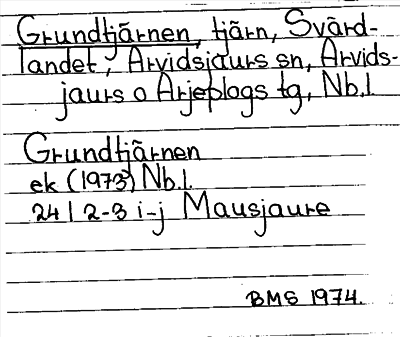 Grundtjärnen, tjärn, Svärd-
landet, Arvidsjaurs sn, Arvids-
jaurs o Arjeplogs tg, Nb.l
Grundtjärnen
ek (1973) Nb.l.
24 I 2-3 i-j Mausjaure
BMS 1974.